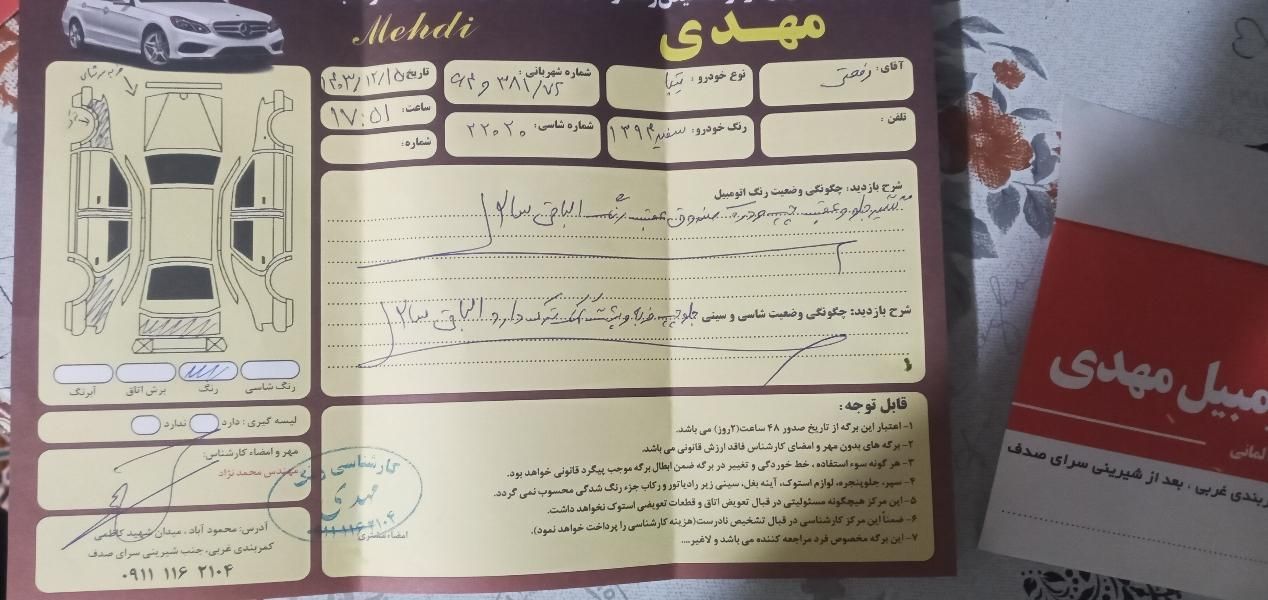 Mehdi
مهدی
آقای: رفعتی
نوع خودرو: تیبا
شماره شهربانی:
تاریخ: ۱۴۰۳/۱۲/۱۵
تلفن:
رنگ خودرو: سفید ۱۳۹۳
شماره شاسی: ۲۲۰۲۰
ساعت: ۱۷:۵۱
شماره:
شرح بازدید: چگونگی وضعیت رنگ اتومبیل
گلگیر جلو و عقب چپ صندوق عقب رنگ الباقی سالم
شرح بازدید: چگونگی وضعیت شاسی و سینی جلو چپ دارد الباقی سالم
رنگ شاسی
رنگ
برش اتاق
آبرنگ
لیسه گیری: دارد ندارد
مهر و امضاء کارشناس:
مهندس محمدنژاد
آدرس: محمود آباد ، میدان شهید کاظمی
کمربندی غربی، جنب شیرینی سرای صدف
۰۹۱۱ ۱۱۶ ۲۱۰۴
قابل توجه:
۱- اعتبار این برگه از تاریخ صدور ۴۸ ساعت(۲روز) می باشد.
۲- برگه های بدون مهر و امضای کارشناس فاقد ارزش قانونی می باشد.
۳- هر گونه سوء استفاده ، خط خوردگی و تغییر در برگه ضمن ابطال برگه موجب پیگرد قانونی خواهد بود.
۴- سپر، جلوپنجره، لوازم استوک، آینه بغل، سینی زیر رادیاتور و رکاب جزء رنگ شدگی محسوب نمی گردد.
۵- این مرکز هیچگونه مسئولیتی در قبال تعویض اتاق و قطعات تعویضی استوک نخواهد داشت.
۶- ضمناً این مرکز کارشناسی در قبال تشخیص نادرست(هزینه کارشناسی را پرداخت خواهد نمود).
۷- این برگه مخصوص فرد مراجعه کننده می باشد و لاغیر....
امضاء مشتری:
کارشناسی
مهدی
مبیل مهدی
لمانی
ربندی غربی ، بعد از شیرینی سرای صدف